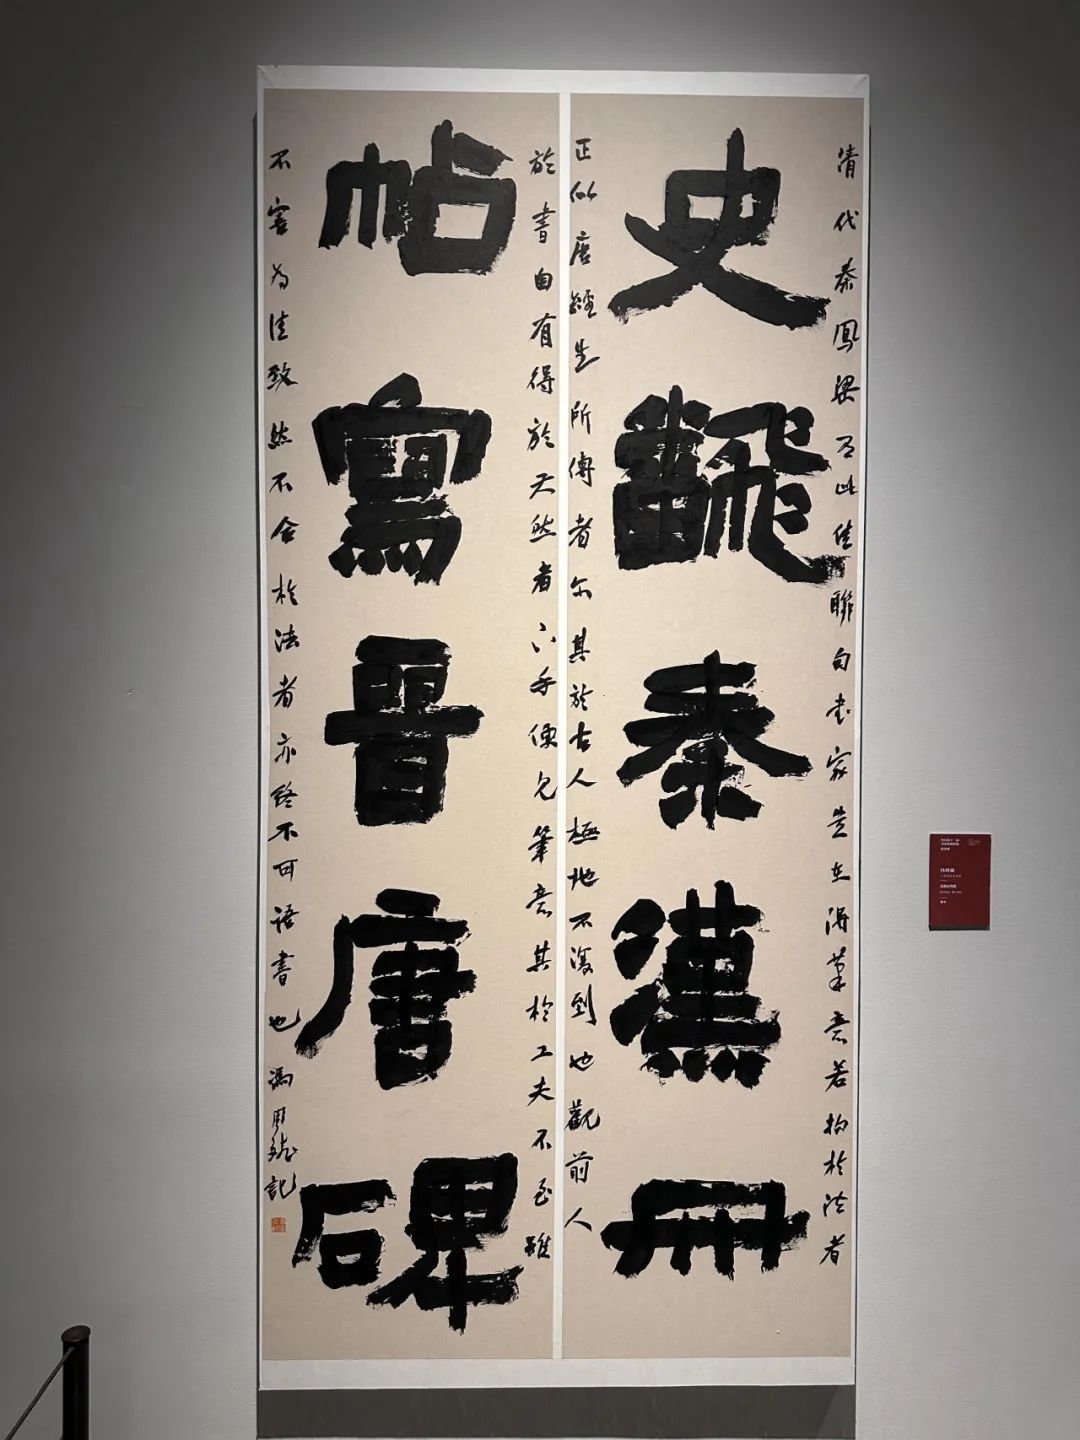 清代秦鳳梁有此佳聯句书家豈在得筆意若拘於法者
史飜秦漢冊
正似唐經生所傳者尓其於古人極地不復到也觀前人
於書自有得於天然者下手便見筆意其於工夫不至雖
帖寫晉唐碑
不害為佳致然不合於法者亦終不可語書也 馮 記